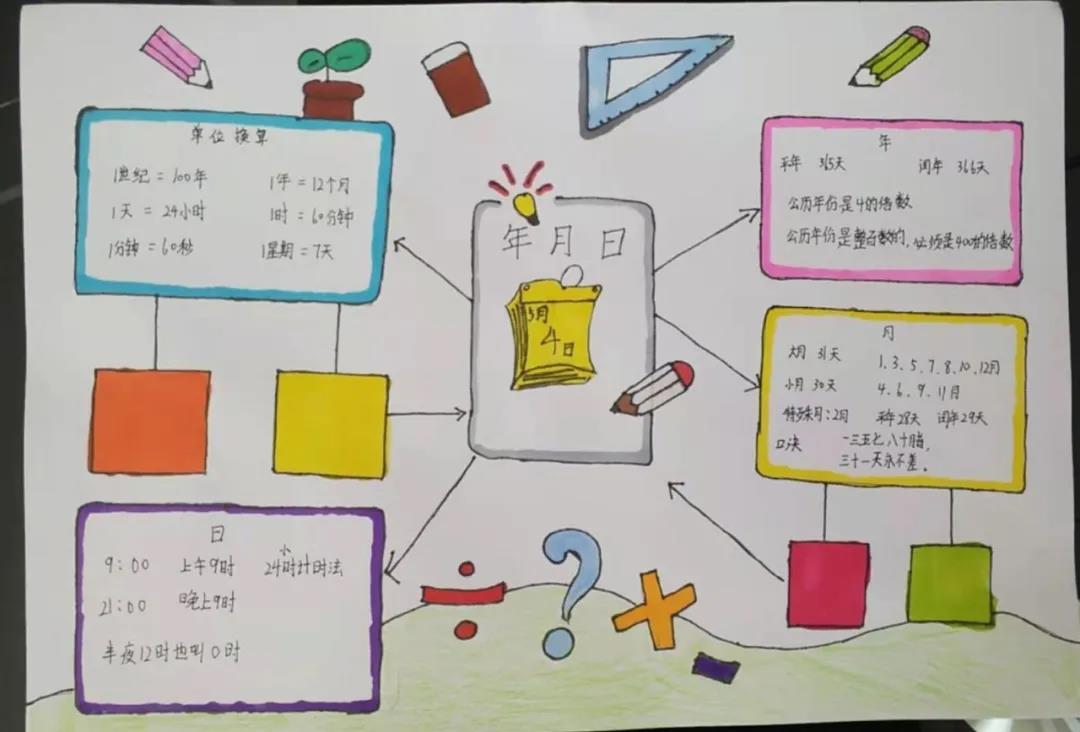 单位换算
1世纪=100年 1年=12个月
1天=24小时 1时=60分钟
1分钟=60秒 1星期=7天
年月日
5月
4日
年
平年 365天 闰年 366天
公历年份是4的倍数
公历年份是整百数的,必须是400的倍数
月
大月 31天 1、3、5、7、8、10、12月
小月 30天 4、6、9、11月
特殊月:2月 平年28天 闰年29天
口决 一三五七八十腊,
三十一天永不差。
日
9:00 上午9时 24小时计时法
21:00 晚上9时
半夜12时也叫0时